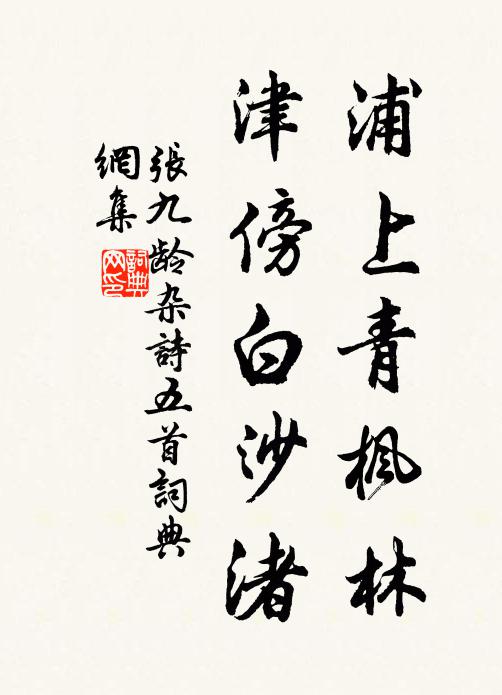 浦上青楓林
津傍白沙渚
張九龄杂詩五首詞典
網集
詞典
网印